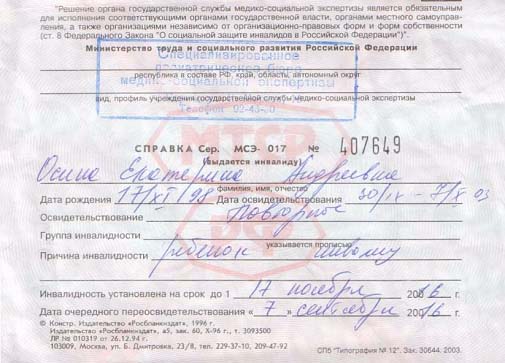 "Решение органа государственной службы медико-социальной экспертизы является обязательным
для исполнения соответствующими органами государственной власти, органами местного самоуправления, а также организациями независимо от организационно-правовых форм и форм собственности
(ст. 8 Федерального Закона "О социальной защите инвалидов в Российской Федерации")".
Министерство труда и социального развития Российской Федерации
Специализированное
педиатрическое бюро
республика в составе РФ, край, область, автономный округ
медико-социальной экспертизы
вид, профиль учреждения государственной службы медико-социальной экспертизы
Телефон
МТСР
СПРАВКА Сер. МСЭ- 017 № 407649
(выдается инвалиду)
Осина Екатерина Андреевна
фамилия, имя, отчество
Дата рождения 17/XI/98 Дата освидетельствования 30/IX - 7/X 03
Освидетельствование повторное
РФ
Группа инвалидности
указывается прописью
Причина инвалидности ребенок инвалид
Инвалидность установлена на срок до 1 17 ноября 2016 г.
Дата очередного переосвидетельствования "7" сентября 2016 г.
© Констр. Издательство «Росбланкиздат», 1996 г.
Издательство «Росбланкиздат», а5, зак. 60, Х-96 г., т. 3093500
ЛР № 010319 от 26.12.94 г.
103009, Москва, ул. Б. Дмитровка, 23/8, тел. 229-37-10, 209-47-92
СПб "Типография № 12". Зак. 30644. 2003.